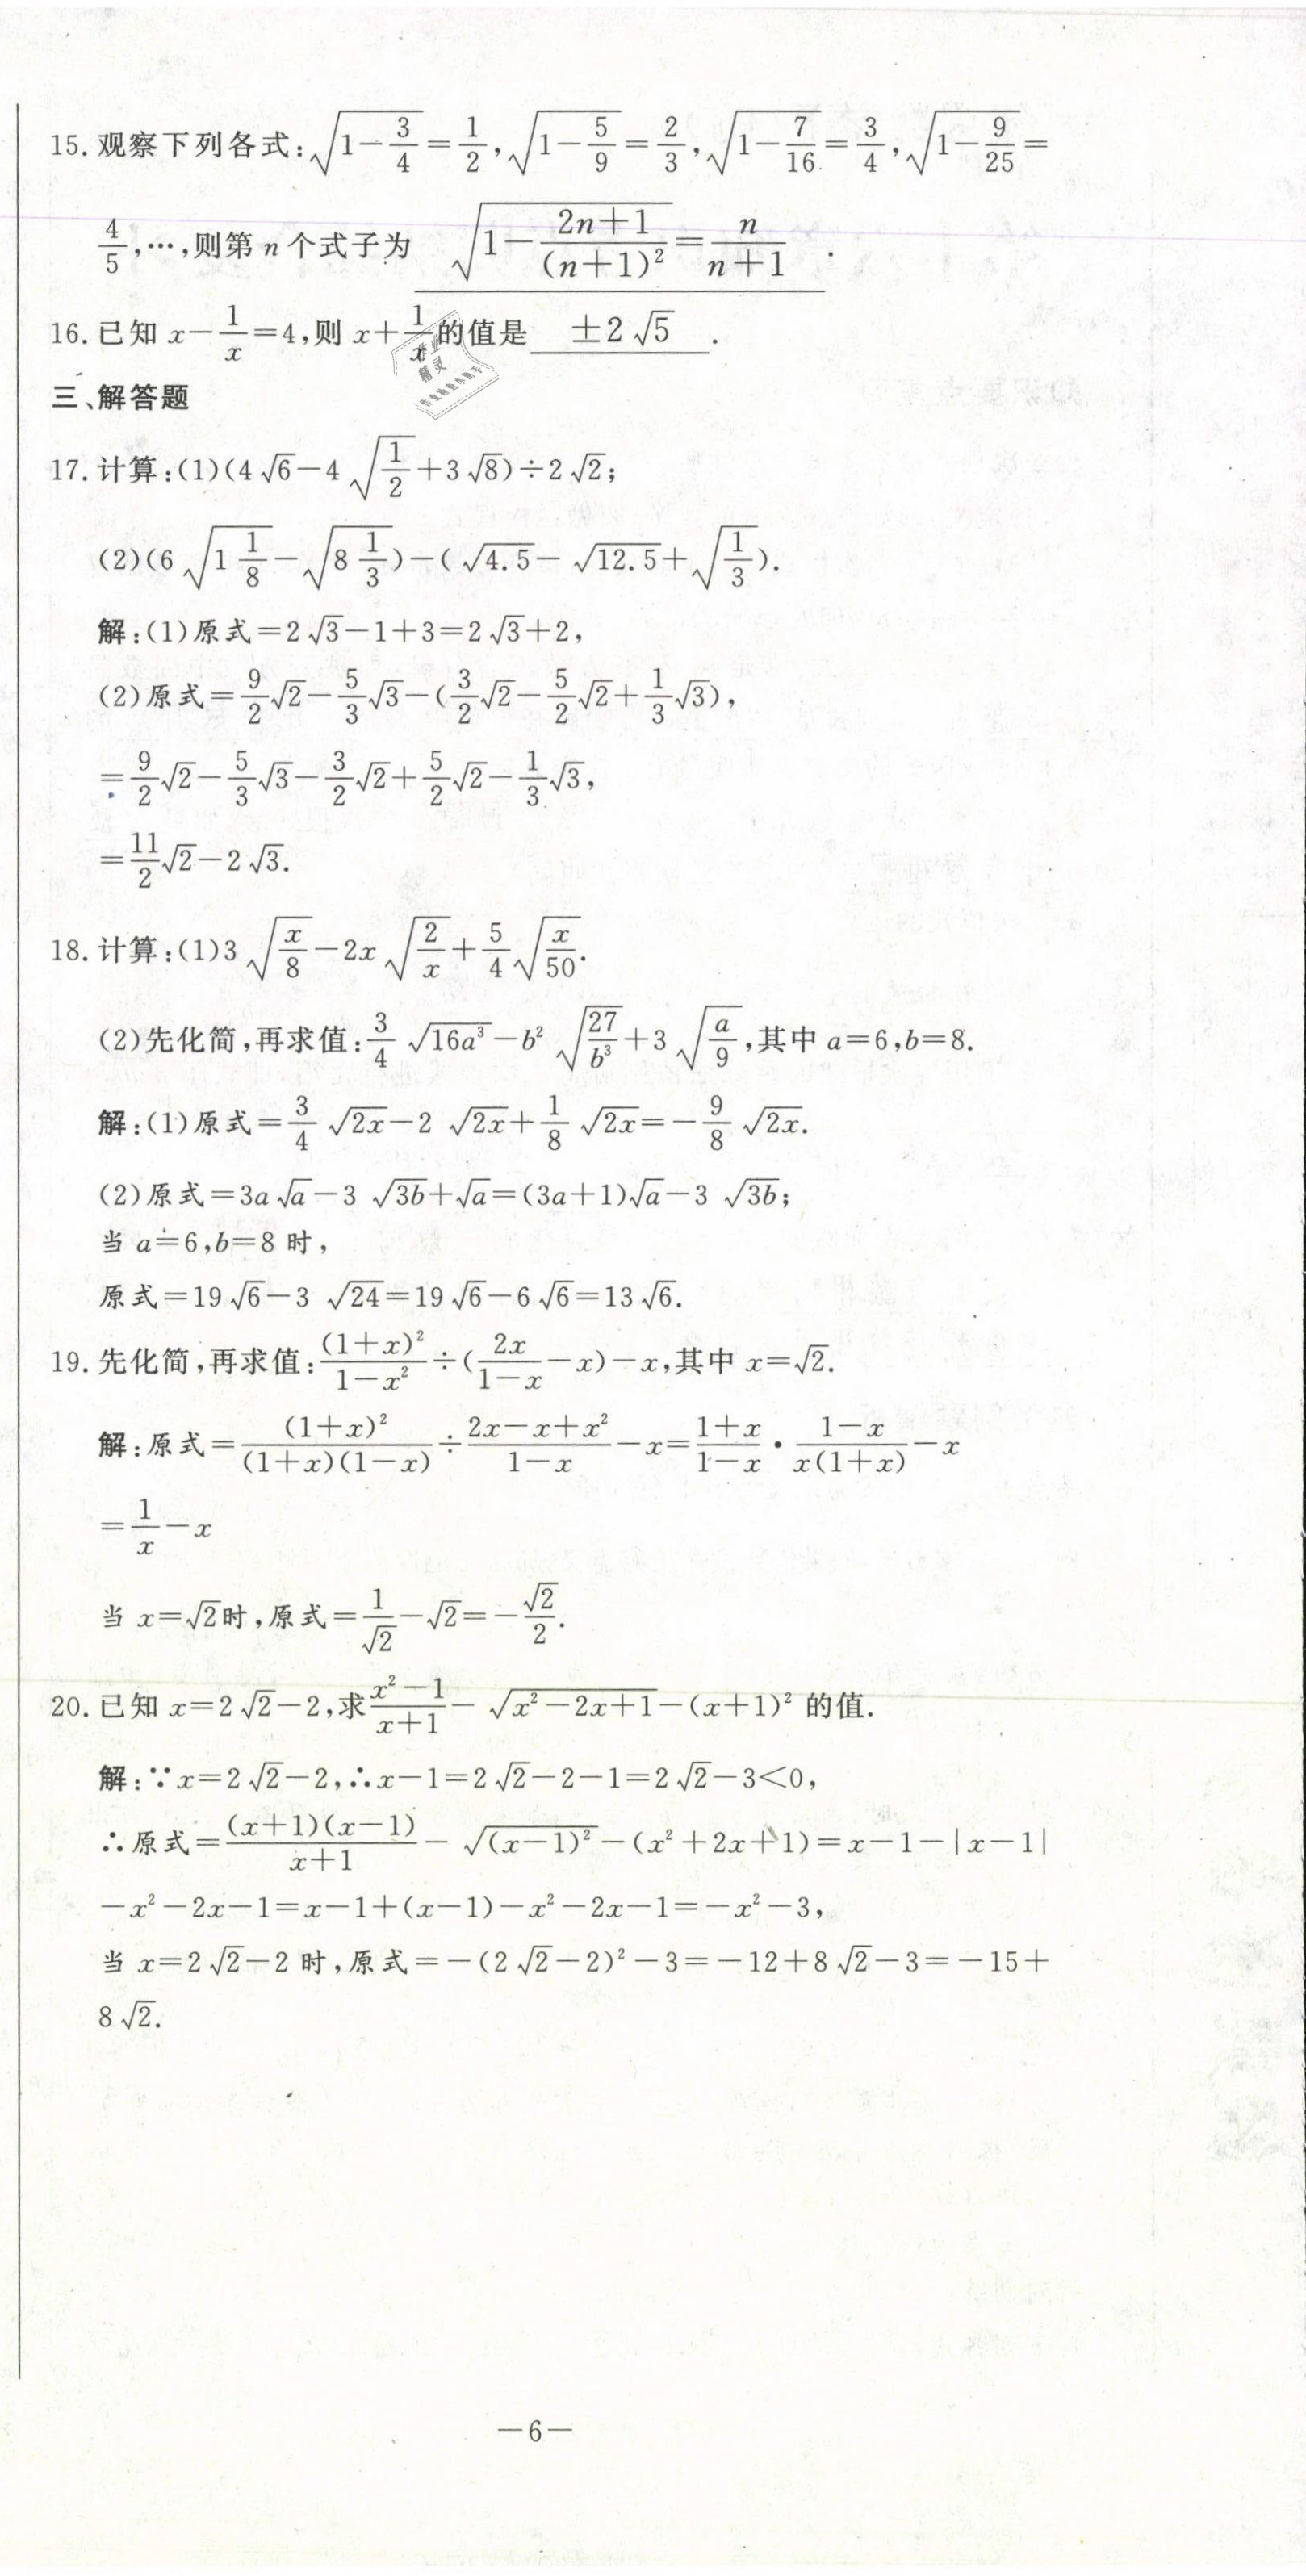 15. 观察下列各式:√(1−3/4)=1/2,√(1−5/9)=2/3,√(1−7/16)=3/4,√(1−9/25)=
4/5,…,则第 n 个式子为 √(1−(2n+1)/(n+1)²)=n/(n+1) .
16. 已知 x−1/x=4,则 x+1/x的值是 ±2√5 .
三、解答题
17. 计算:(1)(4√6−4√(1/2)+3√8)÷2√2;
(2)(6√(1 1/8)−√(8 1/3))−(√4.5−√12.5+√(1/3)).
解:(1)原式=2√3−1+3=2√3+2,
(2)原式=9/2√2−5/3√3−(3/2√2−5/2√2+1/3√3),
=9/2√2−5/3√3−3/2√2+5/2√2−1/3√3,
=11/2√2−2√3.
18. 计算:(1)3√(x/8)−2x√(2/x)+5/4√(x/50).
(2)先化简,再求值:3/4√(16a³)−b²√(27/b³)+3√(a/9),其中 a=6,b=8.
解:(1)原式=3/4√(2x)−2√(2x)+1/8√(2x)=−9/8√(2x).
(2)原式=3a√a−3√(3b)+√a=(3a+1)√a−3√(3b);
当 a=6,b=8 时,
原式=19√6−3√24=19√6−6√6=13√6.
19. 先化简,再求值:(1+x)²/(1−x²)÷(2x/(1−x)−x)−x,其中 x=√2.
解:原式=(1+x)²/((1+x)(1−x))÷(2x−x+x²)/(1−x)−x=(1+x)/(1−x)·(1−x)/(x(1+x))−x
=1/x−x
当 x=√2时,原式=1/√2−√2=−√2/2.
20. 已知 x=2√2−2,求(x²−1)/(x+1)−√(x²−2x+1)−(x+1)² 的值.
解:∵x=2√2−2,∴x−1=2√2−2−1=2√2−3<0,
∴原式=(x+1)(x−1)/(x+1)−√((x−1)²)−(x²+2x+1)=x−1−|x−1|
−x²−2x−1=x−1+(x−1)−x²−2x−1=−x²−3,
当 x=2√2−2 时,原式=−(2√2−2)²−3=−12+8√2−3=−15+
8√2.
—6—